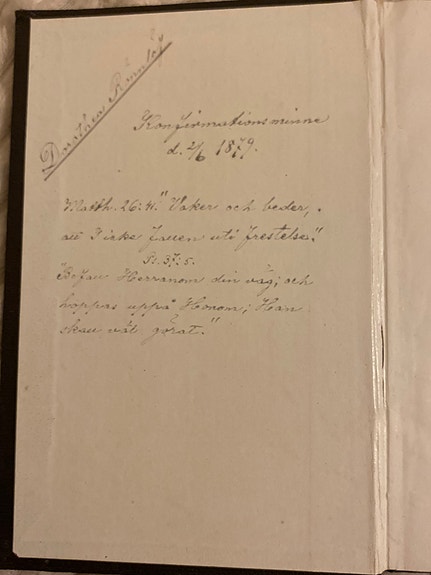 Dorothea
Konfirmationsminne
d. 2/6 1879.
Matth. 26:41." Vaker och beder,
att I icke fallen uti frestelse."
Ps. 37:5.
"Befall Herranom din väg; och
hoppas uppå Honom; Han
skall väl görat."